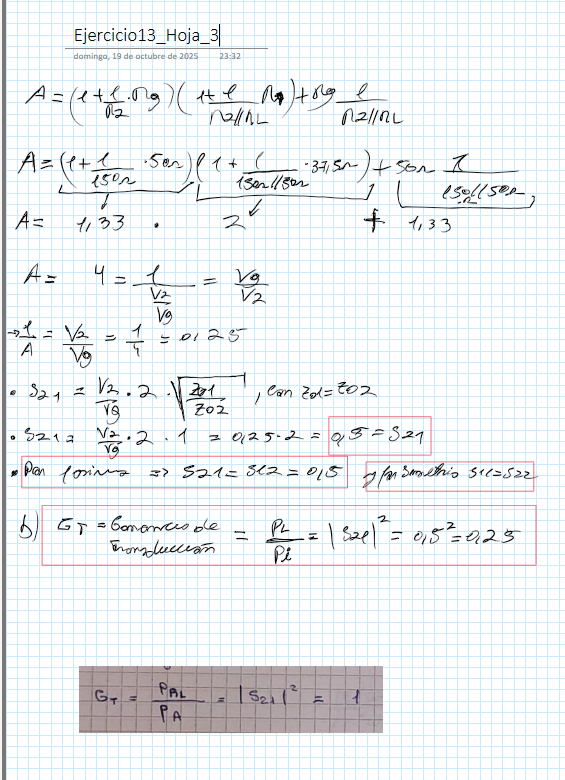 Ejercicio13_Hoja_3
domingo, 19 de octubre de 2025 23:32
A = (1 + 1/R2 · Rg) (1 + 1/(R2//RL) R1) + Rg 1/(R2//RL)
A = (1 + 1/150Ω · 50Ω) (1 + 1/(150Ω//50Ω) · 37,5Ω) + 50Ω 1/(150//50Ω)
A = 1,33 · 2 + 1,33
A = 4 = 1/(V2/Vg) = Vg/V2
→ 1/A = V2/Vg = 1/4 = 0,25
• S21 = V2/Vg · 2 · √(Z01/Z02) , con Z01 = Z02
• S21 = V2/Vg · 2 · 1 = 0,25 · 2 = 0,5 = S21
• Por ⇒ S21 = S12 = 0,5 y por Simetría S11 = S22
b) GT = Ganancia de Transducción = PL/Pi = |S21|² = 0,5² = 0,25
GT = PAL/PA = |S21|² = 1